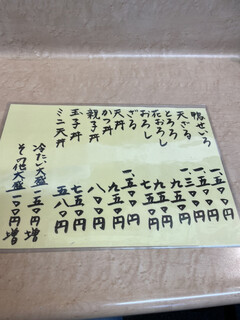 鴨せいろ 一、五〇〇円
天ざる 一、五〇〇円
とろろ
花おろし 九五〇円
おろし 七五〇円
ざる
天丼
かつ丼 九五〇円
親子丼 八〇〇円
玉子丼 七五〇円
ミニ天丼 五八〇円
冷たい大盛 一五〇円増
その他大盛 一〇〇円増